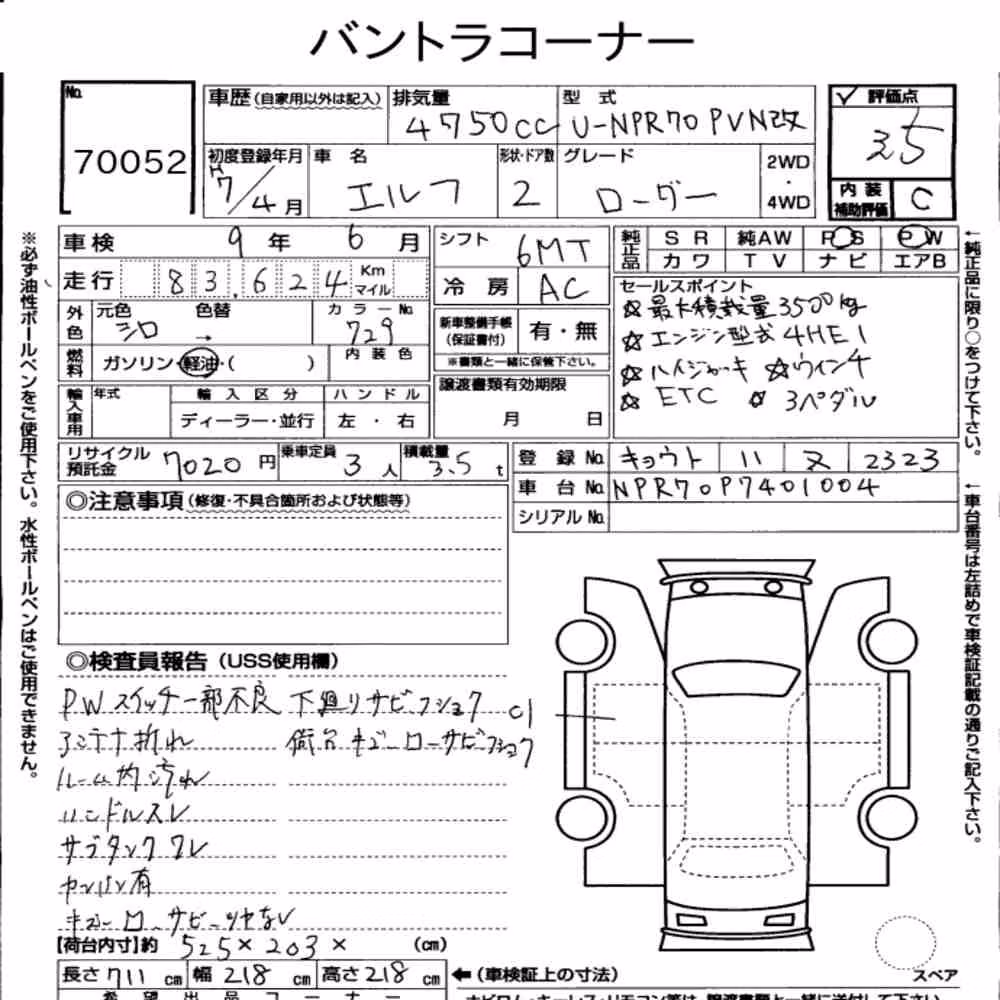 バントラコーナー
No.
70052
車歴(自家用以外は記入)
排気量
4750cc
型式
U-NPR70PVN改
✓評価点
3.5
初度登録年月
H7/4月
車名
エルフ
形状・ドア数
2
グレード
ローダー
2WD
・
4WD
内装
補助評価
C
車検 9年 6月
シフト 6MT
純正品
SR 純AW PS PW
カワ TV ナビ エアB
走行 83,624 Km マイル
冷房 AC
セールスポイント
☆最大積載量3500kg
☆エンジン型式4HE1
☆ハイジャッキ ☆ウインチ
☆ETC ☆3ペダル
外色
元色 シロ
色替 →
カラーNo. 729
新車整備手帳
(保証書付)
有・無
※書類と一緒に保管下さい。
燃料
ガソリン・軽油・( )
内装色
譲渡書類有効期限
月 日
輸入車用
年式
輸入区分
ハンドル
ディーラー・並行
左・右
リサイクル預託金 7020円
乗車定員 3人
積載量 3.5t
登録No. キョウト 11 ヌ 2323
車台No. NPR70P7401004
シリアルNo.
◎注意事項(修復・不具合箇所および状態等)
◎検査員報告(USS使用欄)
PWスイッチ一部不良 下廻りサビフショク
アンテナ折れ 荷台キゴーローサビフショク
ルーム内汚れ
ハンドルスレ
サブタンクワレ
カンバン有
C1
【荷台内寸】約 525×203× (cm)
長さ711cm 幅218cm 高さ218cm
←(車検証上の寸法)
スペア
希望出品コーナー
※必ず油性ボールペンをご使用下さい。水性ボールペンはご使用できません。
←純正品に限り○をつけて下さい。
←車台番号は左詰めで車検証記載の通りご記入下さい。